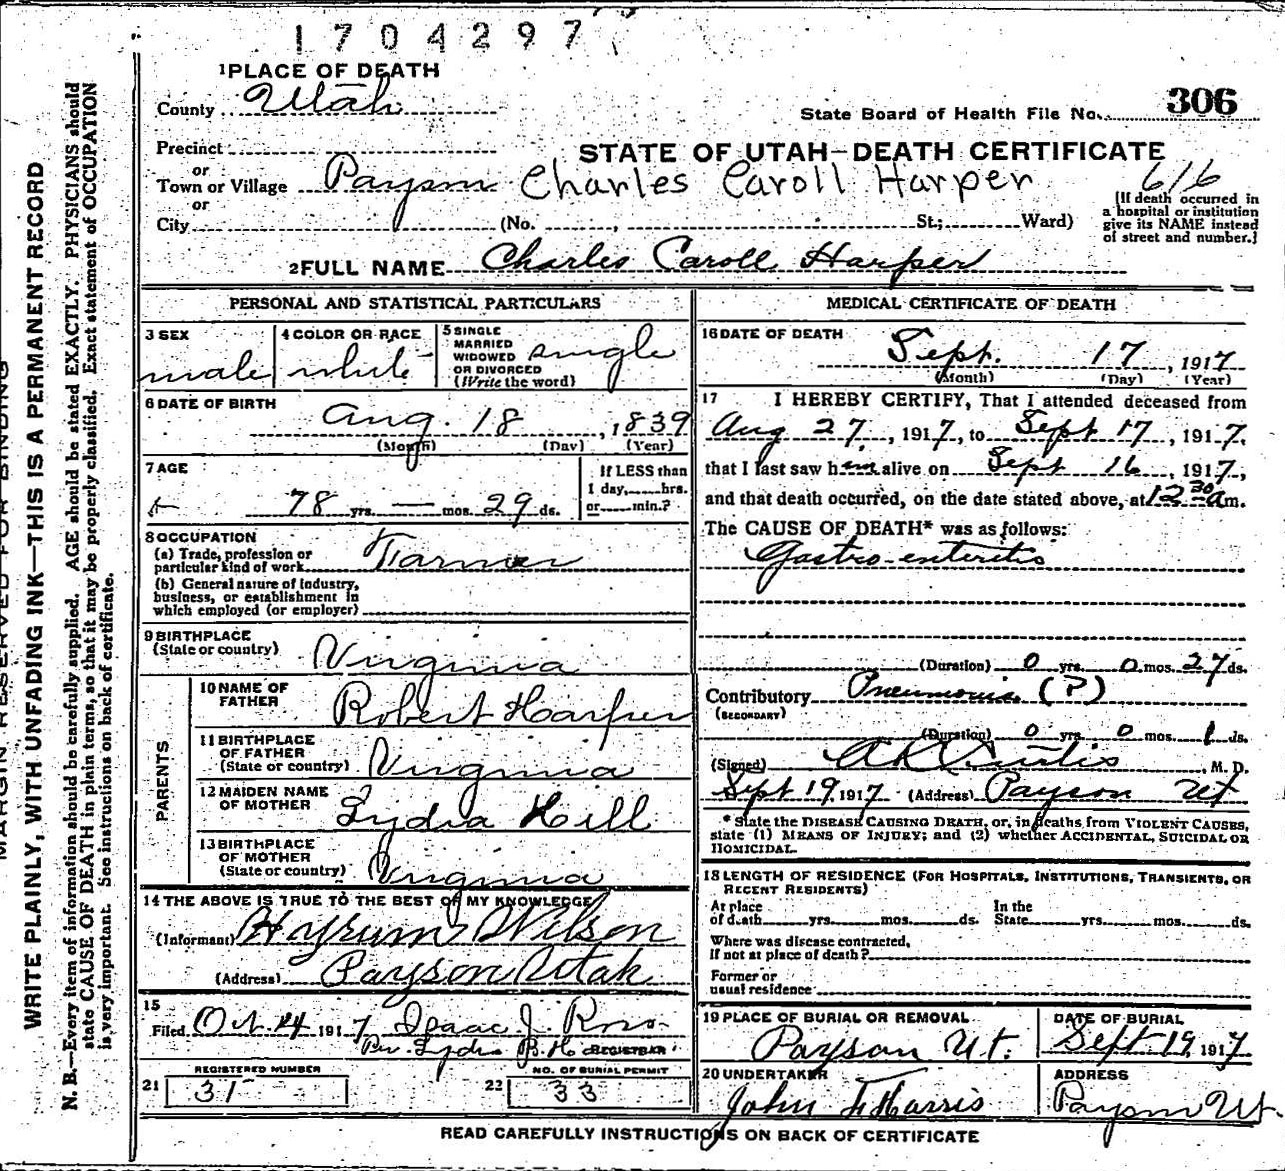 1704297
1 PLACE OF DEATH
County Utah
State Board of Health File No. 306
Precinct
or
Town or Village Payson
or
City
STATE OF UTAH—DEATH CERTIFICATE
Charles Caroll Harper
616
(No. , St.; Ward)
[If death occurred in
a hospital or institution
give its NAME instead
of street and number.]
2 FULL NAME Charles Caroll Harper
PERSONAL AND STATISTICAL PARTICULARS
3 SEX
male
4 COLOR OR RACE
white
5 SINGLE
MARRIED
WIDOWED
OR DIVORCED
(Write the word)
single
6 DATE OF BIRTH
Aug. 18, 1839
(Month) (Day) (Year)
7 AGE
78 yrs. — mos. 29 ds.
If LESS than
1 day, hrs.
or min.?
8 OCCUPATION
(a) Trade, profession or
particular kind of work Farmer
(b) General nature of industry,
business, or establishment in
which employed (or employer)
9 BIRTHPLACE
(State or country) Virginia
PARENTS
10 NAME OF
FATHER Robert Harper
11 BIRTHPLACE
OF FATHER
(State or country) Virginia
12 MAIDEN NAME
OF MOTHER Lydia Hill
13 BIRTHPLACE
OF MOTHER
(State or country) Virginia
14 THE ABOVE IS TRUE TO THE BEST OF MY KNOWLEDGE
(Informant) Hyrum Wilson
(Address) Payson Utah
15
Filed Oct. 4 1917 Isaac J
Per Lydia B. H REGISTRAR
21 REGISTERED NUMBER
31
22 NO. OF BURIAL PERMIT
33
MEDICAL CERTIFICATE OF DEATH
16 DATE OF DEATH
Sept. 17, 1917
(Month) (Day) (Year)
17 I HEREBY CERTIFY, That I attended deceased from
Aug 27, 1917, to Sept 17, 1917,
that I last saw him alive on Sept 16, 1917,
and that death occurred, on the date stated above, at 12 30 a m.
The CAUSE OF DEATH* was as follows:
Gastro-enteritis
(Duration) 0 yrs. 0 mos. 27 ds.
Contributory Pneumonia (?)
(SECONDARY)
(Duration) 0 yrs. 0 mos. 1 ds.
(Signed) Curtis, M. D.
Sept 19, 1917 (Address) Payson Ut
* State the DISEASE CAUSING DEATH, or, in deaths from VIOLENT CAUSES,
state (1) MEANS OF INJURY; and (2) whether ACCIDENTAL, SUICIDAL OR
HOMICIDAL.
18 LENGTH OF RESIDENCE (FOR HOSPITALS, INSTITUTIONS, TRANSIENTS, OR
RECENT RESIDENTS)
At place
of death yrs. mos. ds.
In the
State yrs. mos. ds.
Where was disease contracted,
if not at place of death?
Former or
usual residence
19 PLACE OF BURIAL OR REMOVAL
Payson Ut.
DATE OF BURIAL
Sept 19, 1917
20 UNDERTAKER
John F Harris
ADDRESS
Payson Ut.
READ CAREFULLY INSTRUCTIONS ON BACK OF CERTIFICATE
MARGIN RESERVED FOR BINDING
WRITE PLAINLY, WITH UNFADING INK—THIS IS A PERMANENT RECORD
N. B.—Every item of information should be carefully supplied. AGE should be stated EXACTLY. PHYSICIANS should
state CAUSE OF DEATH in plain terms, so that it may be properly classified. Exact statement of OCCUPATION
is very important. See instructions on back of certificate.